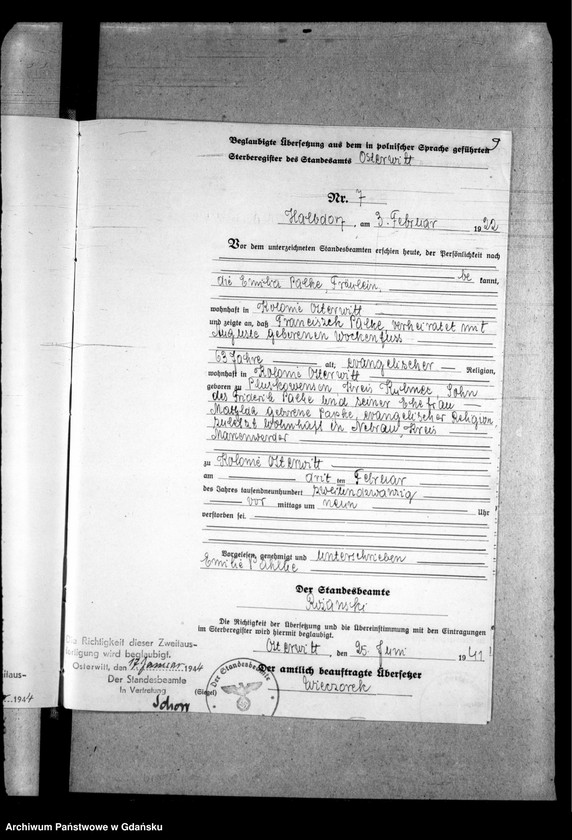 9
Beglaubigte Übersetzung aus dem in polnischer Sprache geführten
Sterberegister des Standesamts Osterwitt
Nr. 7
Halbdorf, am 3. Februar 1922
Vor dem unterzeichneten Standesbeamten erschien heute, der Persönlichkeit nach
be kannt,
die Emilia Palke, Fräulein,
wohnhaft in Kolonie Osterwitt
und zeigte an, daß Franciszek Palke, verheiratet mit
Auguste geborenen Wockenfuss
63 Jahre alt, evangelischer Religion,
wohnhaft in Kolonie Osterwitt
geboren zu Pluskowensen Kreis Kulmer, Sohn
des Friderik Palke und seiner Ehefrau
Mathilde geborene Paske, evangelischer Religion,
zuletzt wohnhaft in Nebrau, Kreis
Marienwerder
zu Kolonie Osterwitt
am drit ten Februar
des Jahres tausendneunhundert zweiundzwanzig
vor mittags um neun Uhr
verstorben sei.
Vorgelesen, genehmigt und unterschrieben
Emilie Pahlke
Der Standesbeamte
Die Richtigkeit der Übersetzung und die Übereinstimmung mit den Eintragungen
im Sterberegister wird hiermit beglaubigt.
Osterwitt, den 25. Juni 1941
Der amtlich beauftragte Übersetzer
(Siegel) Wieczorek
Der Standesbeamte
Die Richtigkeit dieser Zweitaus-
fertigung wird beglaubigt.
Osterwitt, den 17. Januar 1944
Der Standesbeamte
In Vertretung
Schorr
itaus-
1944
Archiwum Państwowe w Gdańsku